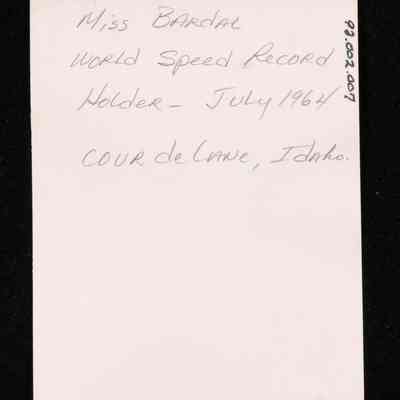 Miss BARDAL
WORLD Speed RECORD
Holder - July 1964
COUR de LANE, Idaho.
92.002.007